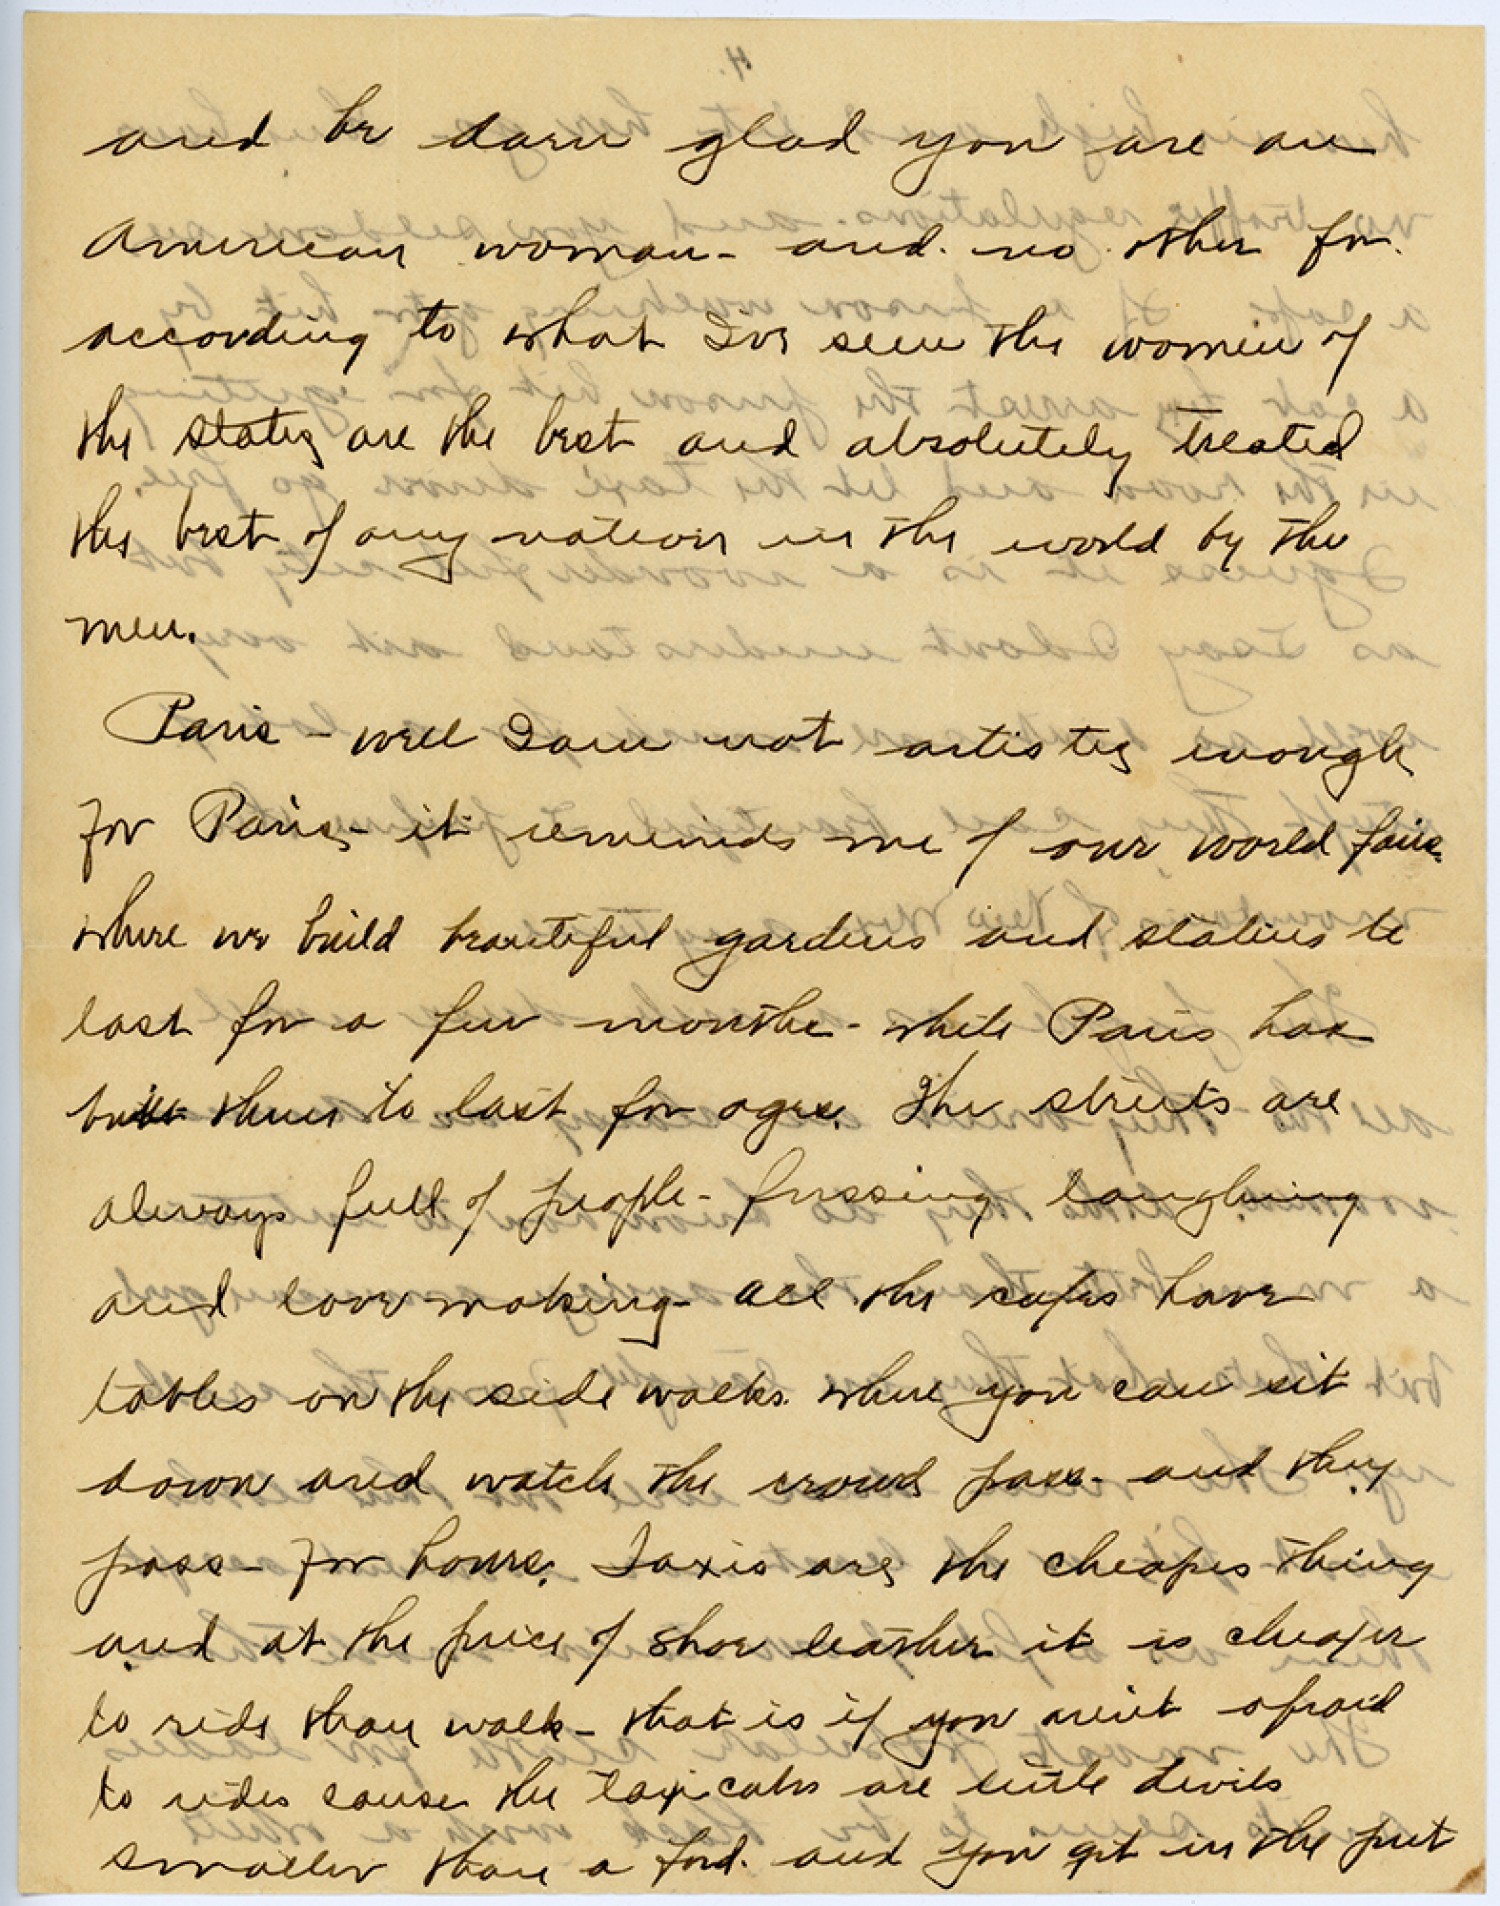 4.
and be darn glad you are an
American woman - and no other for
according to what I've seen the women of
the states are the best and absolutely treated
the best of any nation in the world by the
men.
Paris - well I am not artistic enough
for Paris - it reminds me of our world fairs
where we build beautiful gardens and statues to
last for a few months - while Paris has
built them to last for ages. The streets are
always full of people - fussing laughing
and love making - all the cafes have
tables on the side walks where you can sit
down and watch the crowd pass - and they
pass - for hours. Taxis are the cheapes thing
and at the price of shoe leather it is cheaper
to ride than walk - that is if you aint afraid
to ride cause the taxi cabs are little devils
smaller than a ford. and you get in the